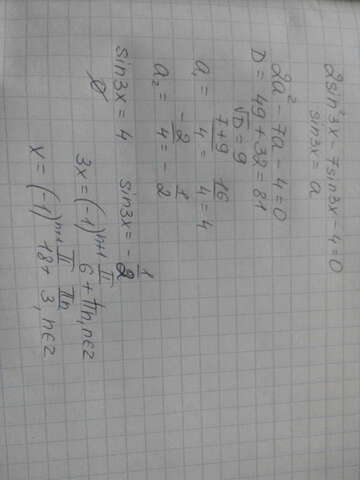 2sin²3x - 7sin3x - 4 = 0
sin3x = a
2a² - 7a - 4 = 0
D = 49 + 32 = 81
√D = 9
a₁ = (7+9)/4 = 16/4 = 4
a₂ = -2/4 = -1/2
sin3x = 4 sin3x = -1/2
∅ 3x = (-1)ⁿ⁺¹ π/6 + πn, n∈z
x = (-1)ⁿ⁺¹ π/18 + πn/3, n∈z